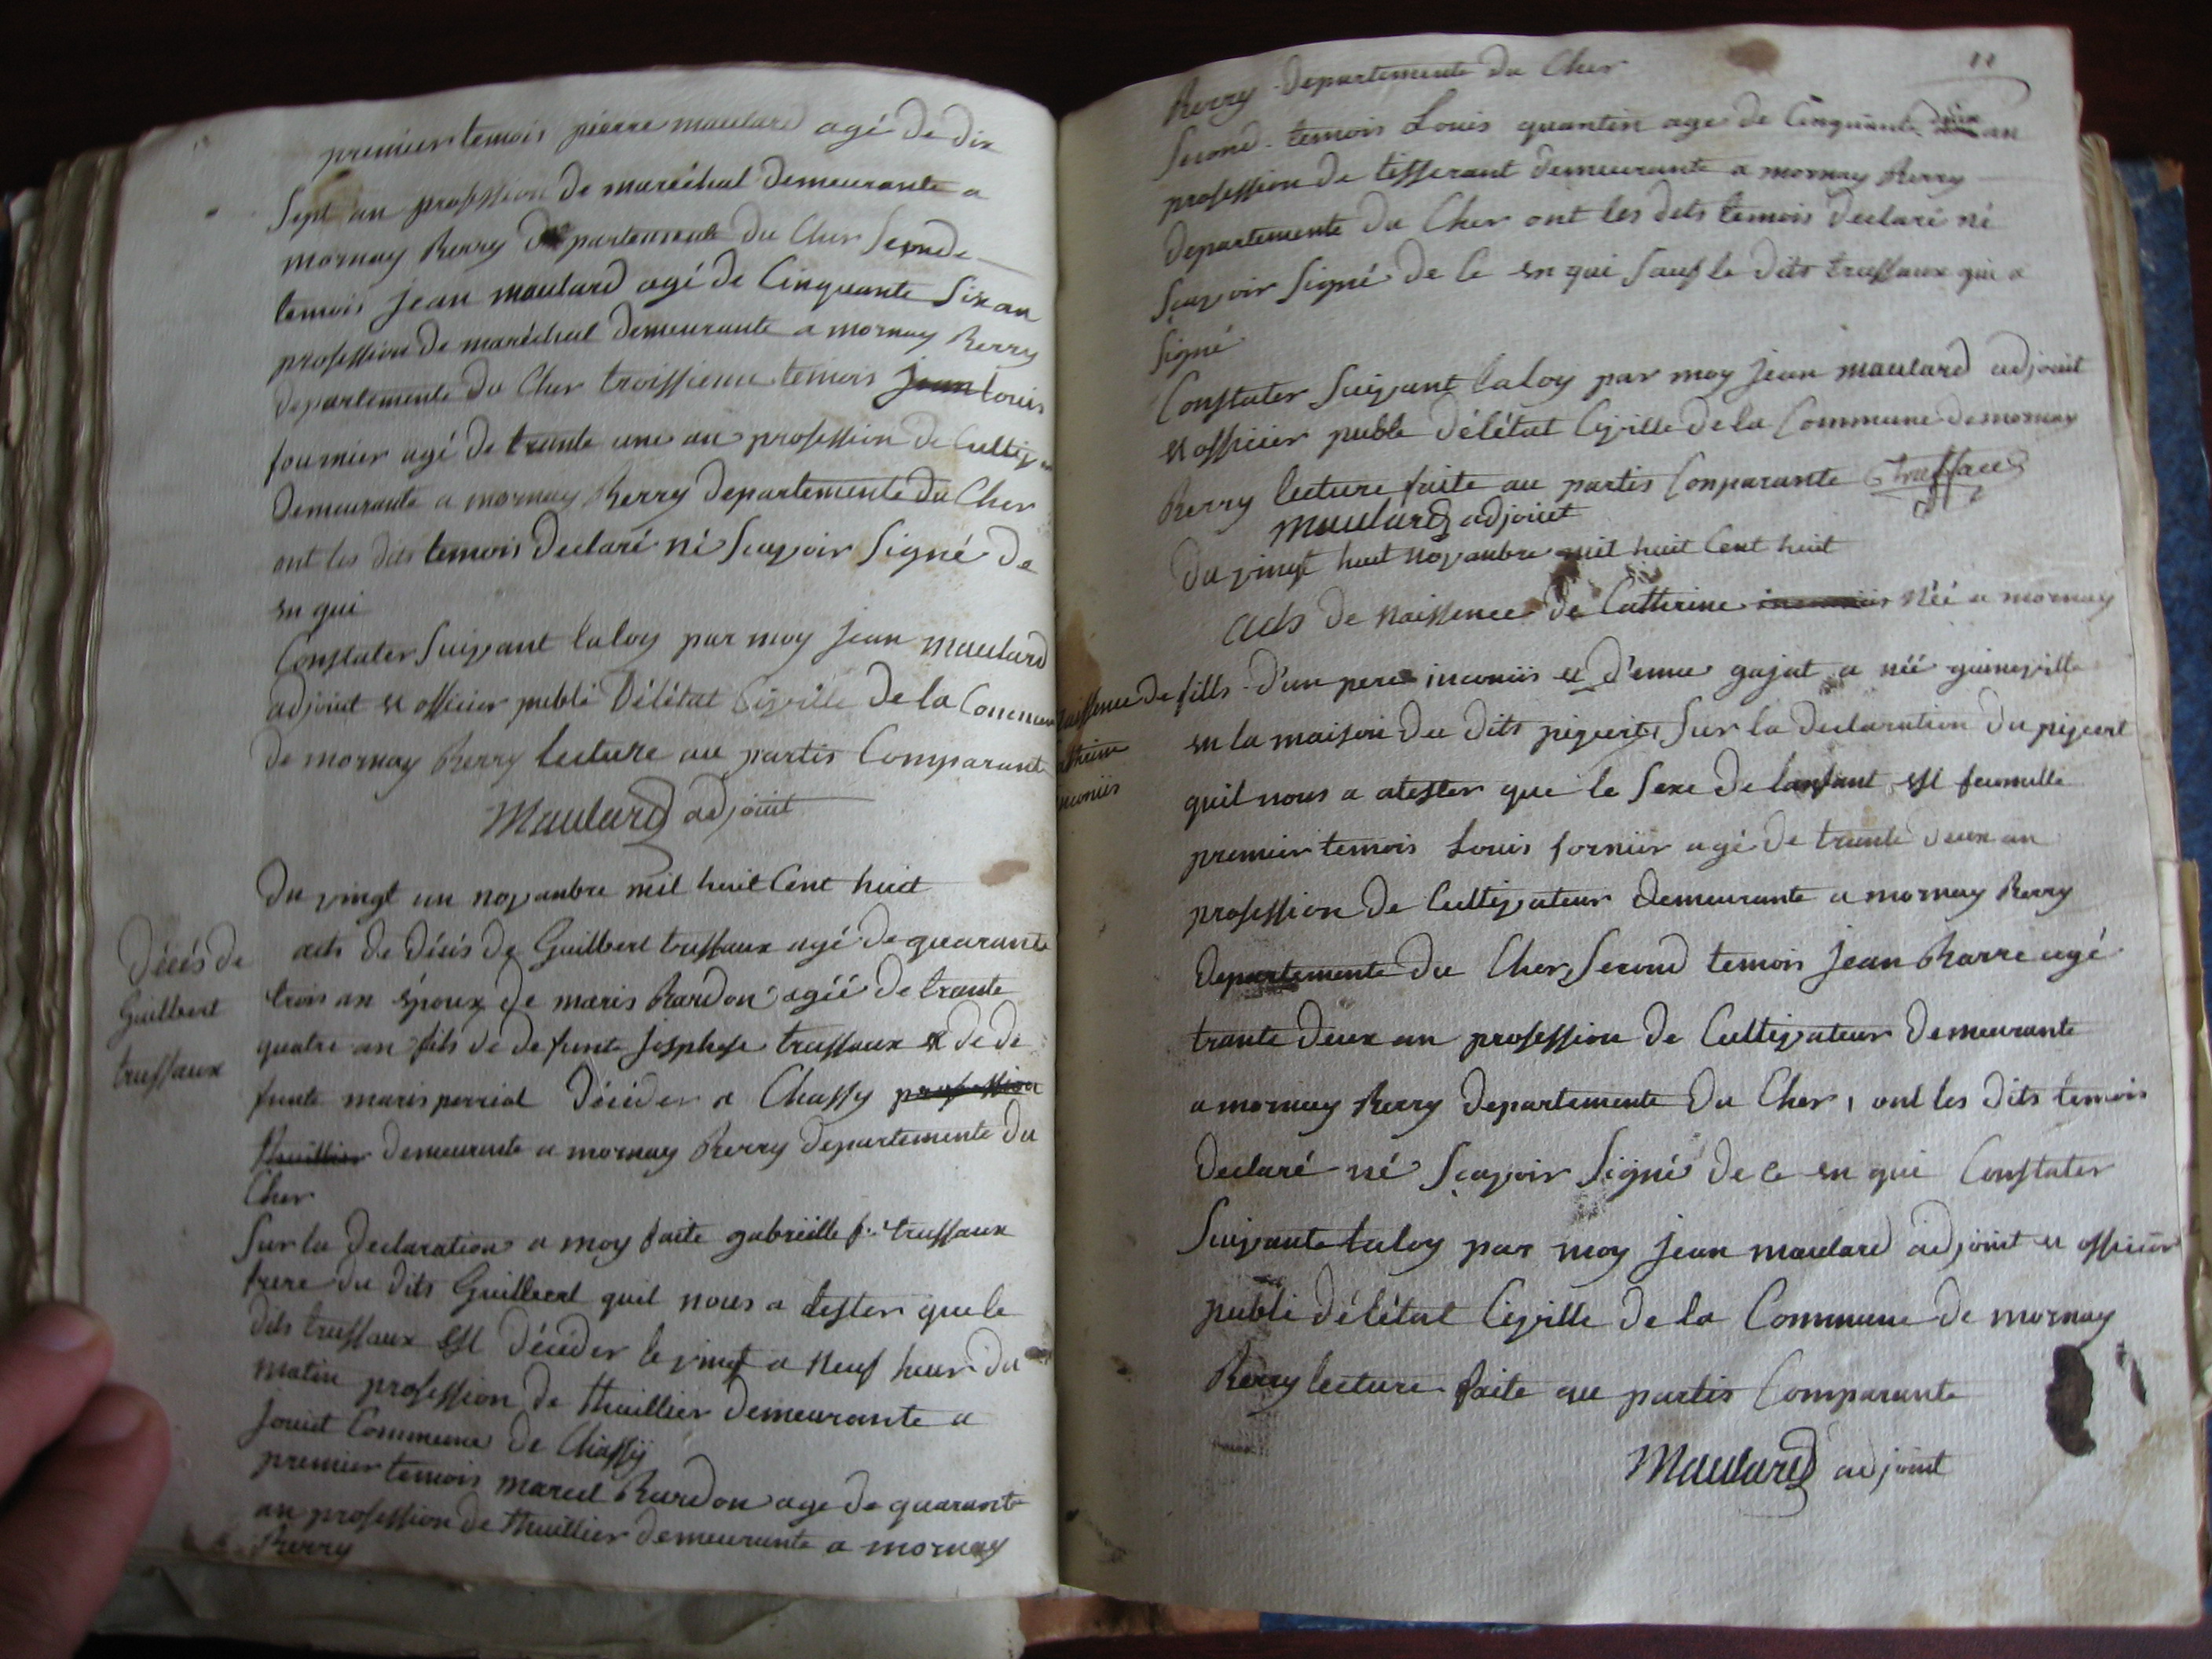 premier temois pierre maulard agé de dix
sept an profession de maréchal demeurante a
mornay Berry departemente du Cher seconde
temois jean maulard agé de Cinquante Six an
profession de maréchal demeurante a mornay Berry
departemente du Cher troissieme temois jean louis
fournier agé de trante une an profession de Cultiv
demeurante a mornay Berry departemente du Cher
ont les dits temois declaré né sçavoir signé de
en qui
Constater suivant laloy par moy jean maulard
adjoint et officier publi délétat Civille de la Commune
de mornay Berry lecture au partis Comparant
Maulard adjoint
du vingt un novanbre mil huit Cent huit
Décés de
Guillbert
truffaux
acts de décés de Guillbert truffaux agé de quarante
trois an époux de maris Bardon agéé de trante
quatre an fils de defunte josphe truffaux et de de
funte maris perriot décéder a Chassy profession
thuillier demeurante a mornay Berry departemente du
Cher
Sur la declaration a moy faite gabrielle f. truffaux
frere du dits Guillbert quil nous a tester que le
dits truffaux est décéder le vingt a neuf heur du
matin profession de thuillier demeurante a
jouet Commune de Chassy
premier temois marcel Bardon age de quarante
an profession de thuillier demeurante a mornay
Berry
11
Berry departemente du Cher
Second temois Louis quantin age de Cinquante deux an
profession de tisserant demeurante a mornay Berry
departemente du Cher ont les dits temois declaré né
sçavoir signé de ce en qui sauf le dits truffaux qui a
signé
Constater suivant laloy par moy jean maulard adjoint
et officier publi délétat Civille de la Commune de mornay
Berry lecture faite au partis Conparante truffaux
Maulard adjoint
du vingt huit novanbre mil huit Cent huit
acts de naissence de Catherine inconniis néé a mornay
naissence de
atherine
nconiis
fills d'un pere inconiis et d'enne gajat a néé
en la maison du dits pigueri sur la declaration du
quil nous a atester que le sexe de lanfant est feumelle
premier temois Louis fornier agé de trante deux an
profession de Cultivateur demeurante a mornay Berry
departemente du Cher, Second temois jean Barre agé
trante deux an profession de Cultivateur demeurante
a mornay Berry departemente du Cher, ont les dits temois
declaré né sçavoir signé de ce en qui Constater
suivante laloy par moy jean maulard adjoint et officier
publi délétat Civille de la Commune de mornay
Berry lecture faite au partis Comparante
Maulard adjoint